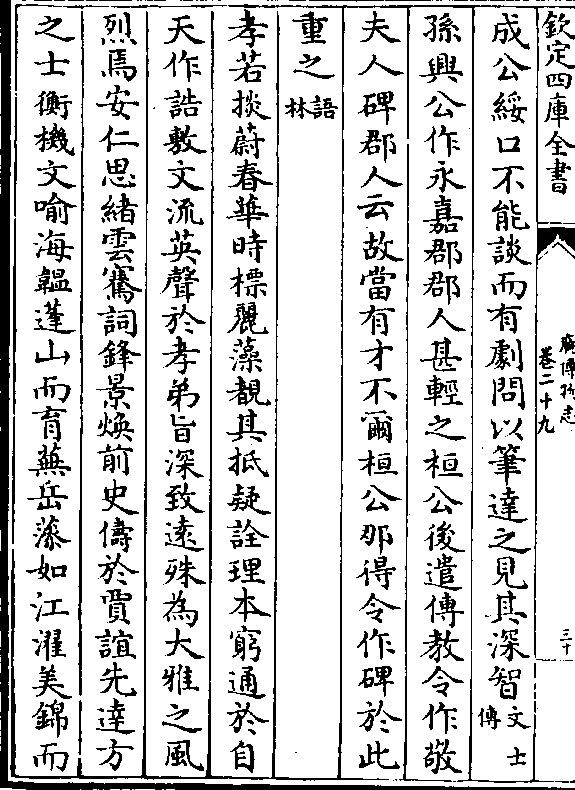 欽定四庫全書
廣博物志
卷二十九
三十
成公綏口不能談而有劇問以筆達之見其深智文士傳
孫興公作永嘉郡郡人甚輕之桓公後遣傳教令作敬
夫人碑郡人云故當有才不爾桓公那得令作碑於此
重之語林
孝若掞蔚春華時標麗藻覩其抵疑詮理本窮通於自
天作誥敷文流英聲於孝弟旨深致遠殊為大雅之風
烈焉安仁思緒雲騫詞鋒景煥前史儔於賈誼先達方
之士衡機文喻海韞蓬山而育蕪岳藻如江濯美錦而